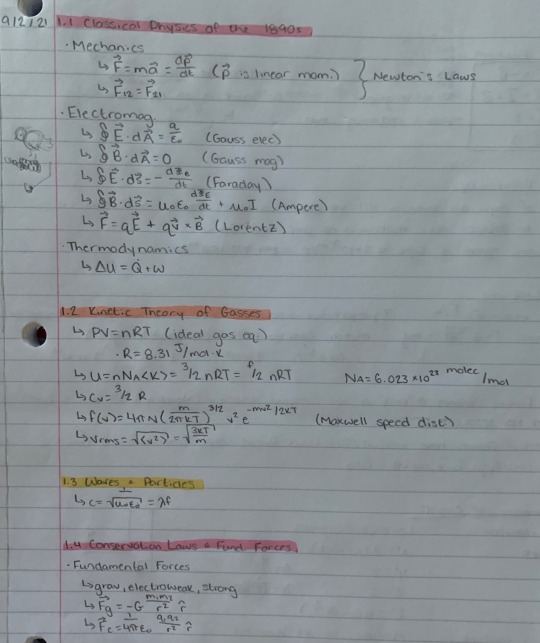 9/2/21 1.1 Classical Physics of the 1890s
· Mechanics
↳ F⃗ = ma⃗ = dp⃗/dt (p⃗ is linear mom.) } Newton's Laws
↳ F⃗₁₂ = F⃗₂₁
· Electromag.
↳ ∮ E⃗ · dA⃗ = q/ε₀ (Gauss elec)
↳ ∮ B⃗ · dA⃗ = 0 (Gauss mag)
↳ ∮ E⃗ · ds⃗ = - dΦ/dt (Faraday)
↳ ∮ B⃗ · ds⃗ = μ₀ε₀ dΦE/dt + μ₀I (Ampere)
↳ F⃗ = qE⃗ + qv⃗ × B⃗ (Lorentz)
· Thermodynamics
↳ ΔU = Q + W
1.2 Kinetic Theory of Gasses
↳ PV = nRT (ideal gas eq)
· R = 8.31 J/mol·K
↳ U = nNA<K> = 3/2 nRT = f/2 nRT NA = 6.023 × 10²³ molec/mol
↳ Cv = 3/2 R
↳ f(v) = 4πN (m/2πkT)^3/2 v² e^-mv²/2kT (Maxwell speed dist)
↳ Vrms = √(v²) = √3kT/m
1.3 Waves + Particles
↳ c = 1/√μ₀ε₀ = λf
1.4 Conservation Laws + Fund. Forces
· Fundamental Forces
↳ grav, electroweak, strong
↳ F⃗g = -G m₁m₂/r² r̂
↳ F⃗c = 1/4πε₀ q₁q₂/r² r̂